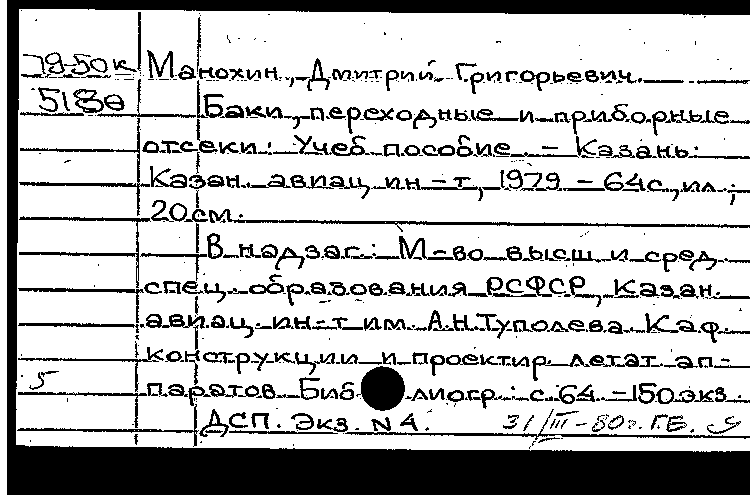 79-50к Манохин, Дмитрий Григорьевич.
5180 Баки, переходные и приборные
отсеки: Учеб. пособие. - Казань:
Казан. авиац. ин-т, 1979 - 64с., ил.;
20см.
В надзаг.: М-во высш. и сред.
спец. образования РСФСР, Казан.
авиац. ин-т им. А.Н.Туполева. Каф.
конструкции и проектир. летат. ап-
5 паратов. Библиогр.: с. 64. - 150экз.
ДСП. Экз. N 4. 31/III-80г. Г.Б.